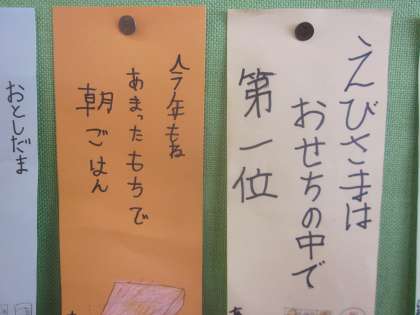 えびさまは
おせちの中で
第一位
今年もね
あまったもちで
朝ごはん
おとしだま